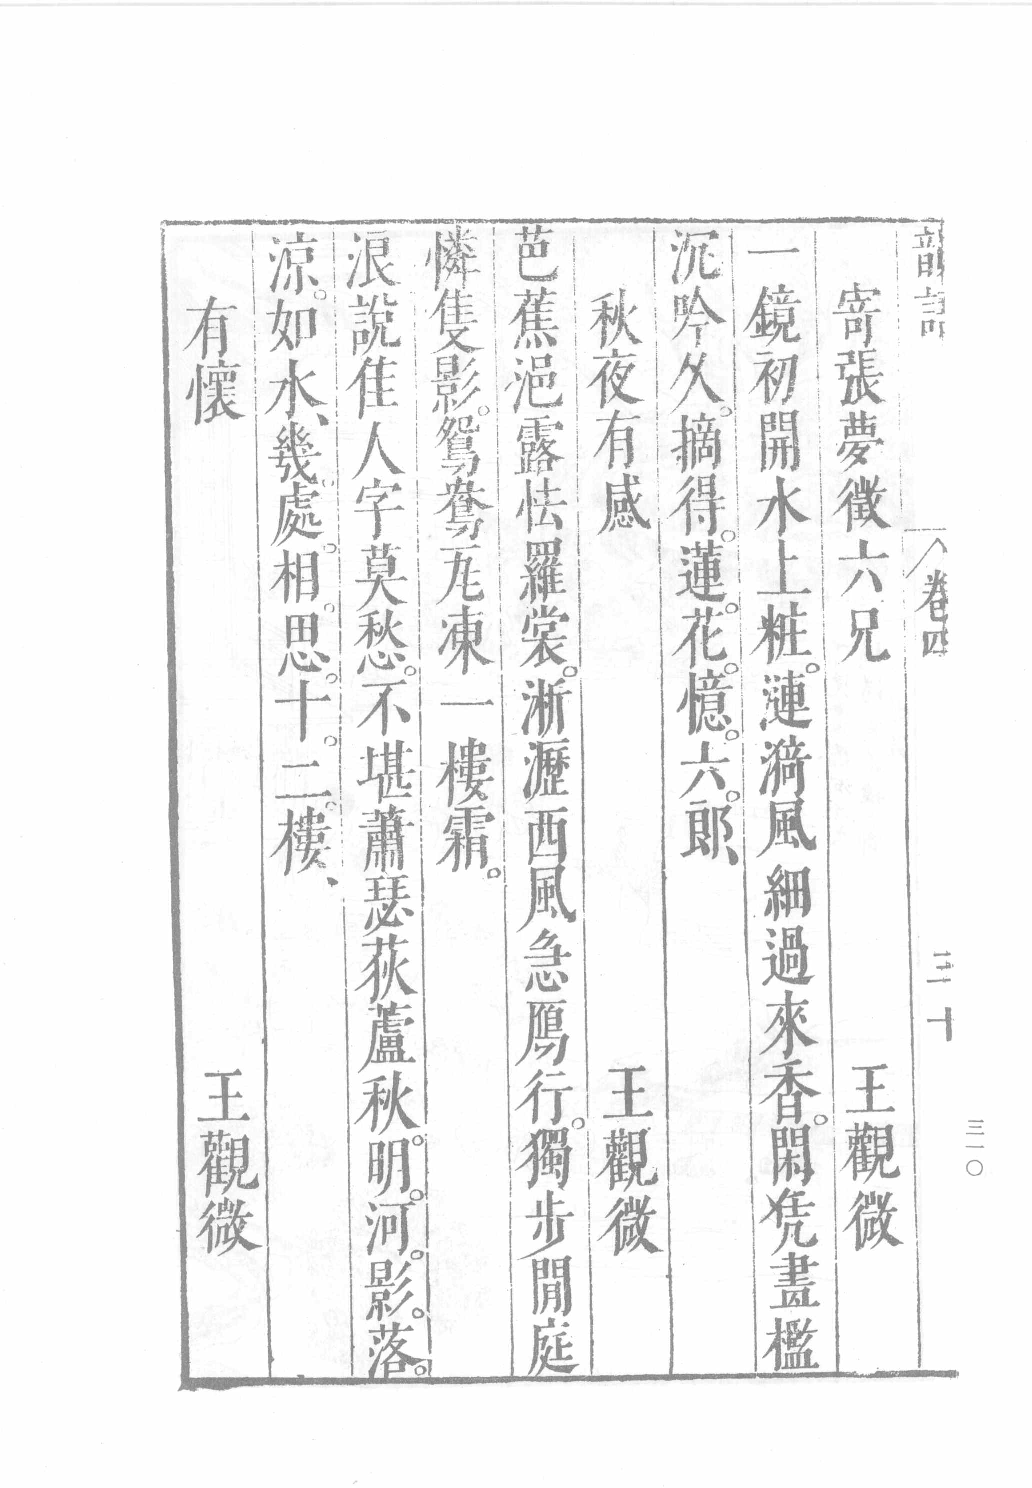 韻語 卷四 三十
寄張夢徵六兄 王觀微
一鏡初開水上粧。漣漪風細過來香。閑凭畫檻
沉吟久。摘得。蓮。花。憶。六。郎、
秋夜有感 王觀微
芭蕉浥露怯羅裳。淅瀝西風急鴈行。獨步閒庭
憐隻影。鴛鴦瓦凍一樓霜。
浪說佳人字莫愁。不堪蕭瑟荻蘆秋。明。河。影。落。
凉。如水、幾。處。相。思。十。二。樓、
有懷 王觀微
三一〇